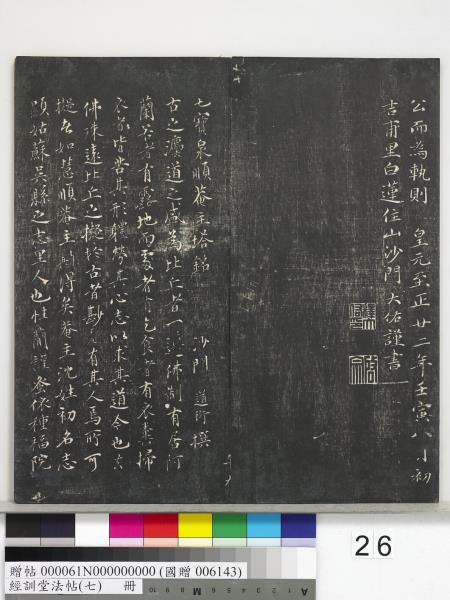 公而為軌則 皇元至正廿二年壬寅八月初
吉甫里白蓮住山沙門大佑謹書
七寶泉順菴主塔銘 沙門 道衍 撰
古之濃道之盛為比丘者一遵佛制有居阿
蘭若者有露地而處者有乞食者有衣糞掃
衣者皆苦其形體勞其心志以求其道今也去
佛時遠比丘之擬於古者尠有其人焉所可
擬者如慧順菴主
矣菴主沈姓初名志
顯姑蘇吳縣之志里人也性簡謹
依種福院
26
贈帖 000061N000000000 (國贈 006143)
經訓堂法帖(七) 冊
A 1 2 3 4 5 6 M 8 9 10